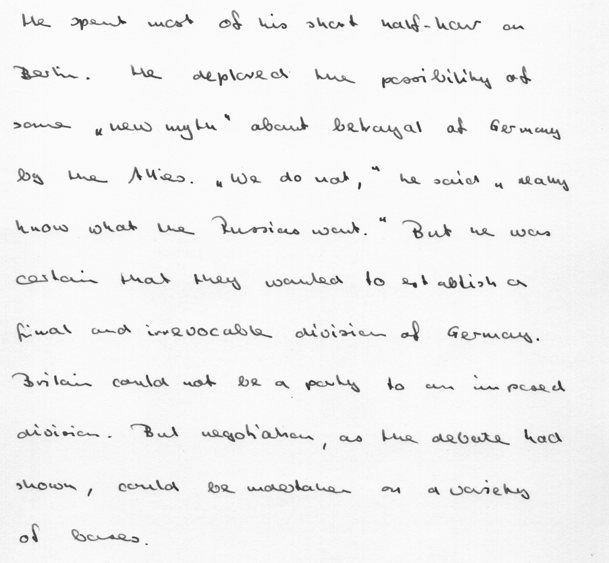 He spent most of his short half-hour on
Berlin. He deplored the possibility of
some „new myth" about betrayal of Germany
by the Allies. „We do not," he said „really
know what the Russians want." But he was
certain that they wanted to establish a
final and irrevocable division of Germany.
Britain could not be a party to an imposed
division. But negotiation, as the debate had
shown, could be undertaken on a variety
of bases.